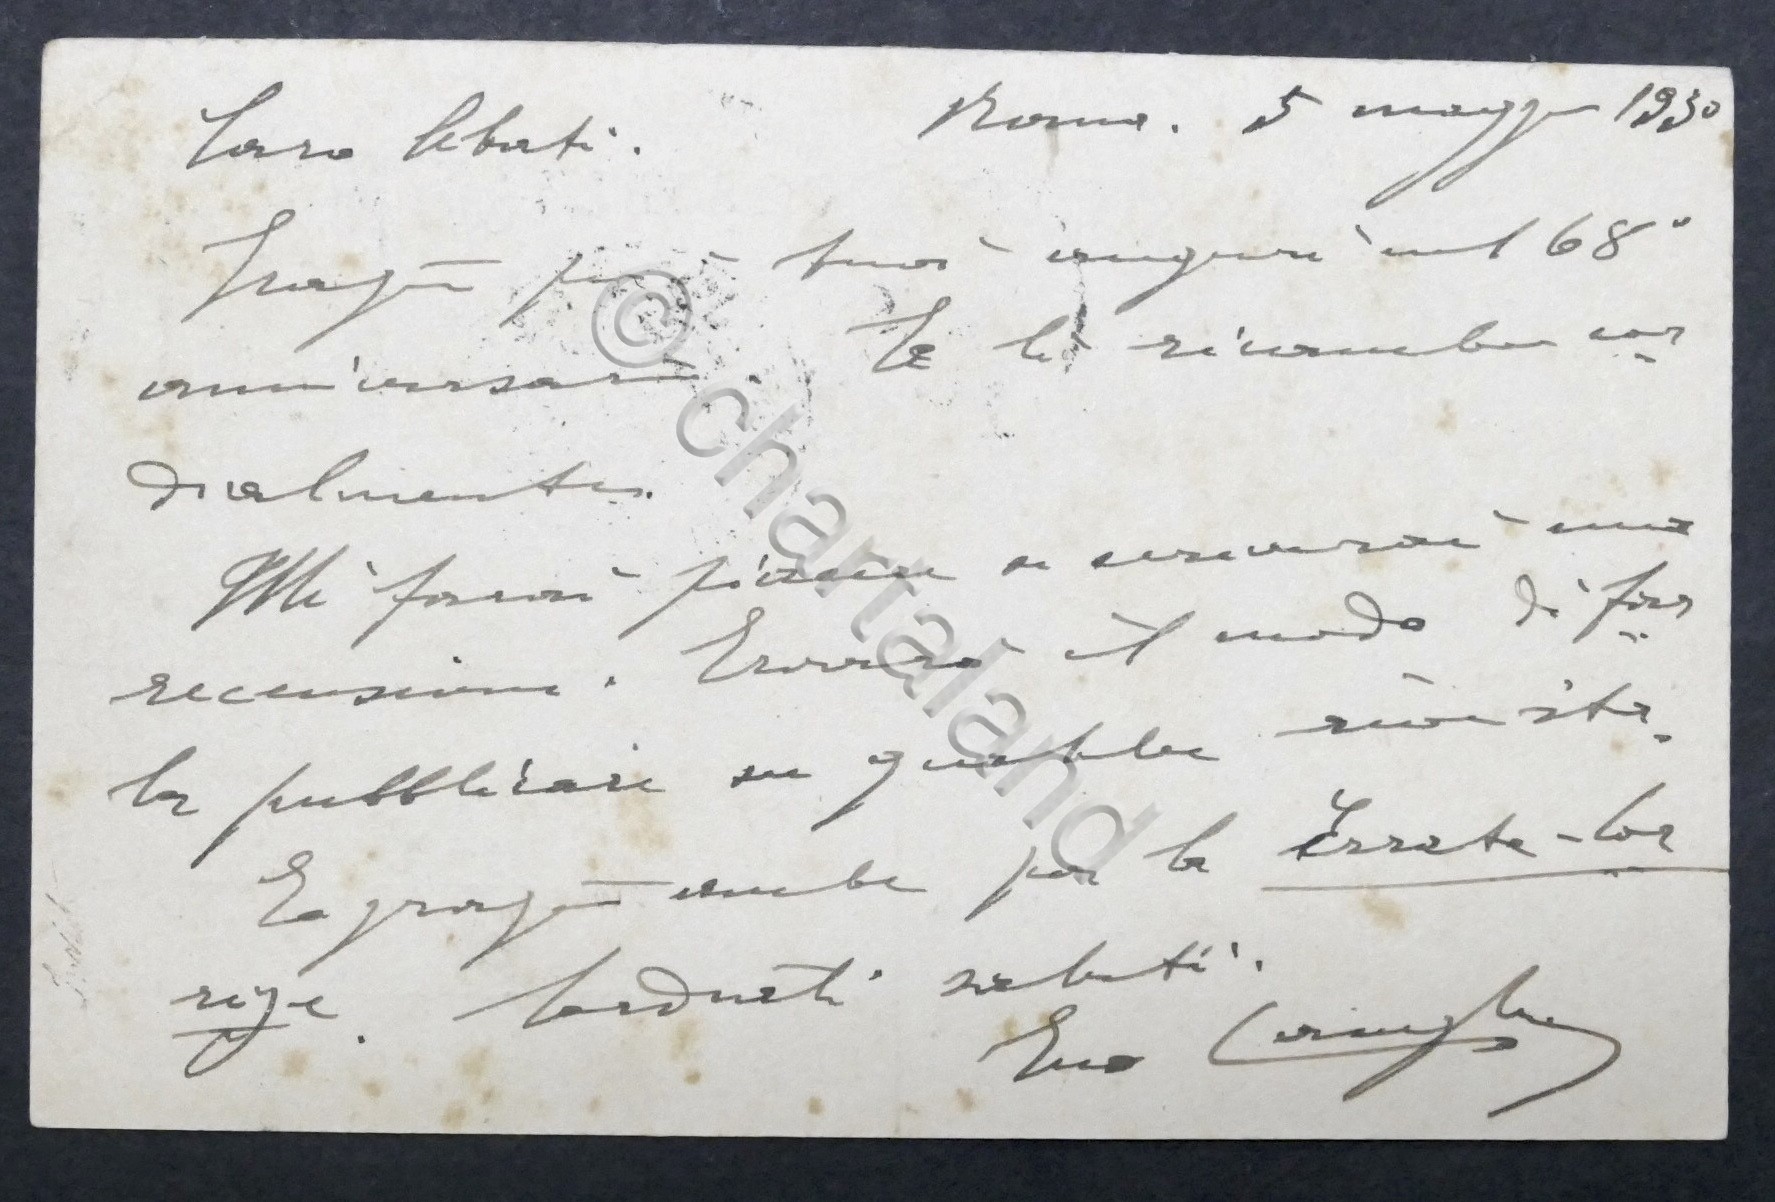 Caro Abati. Roma. 5 maggio 1930
Grazie pei tuoi auguri nel 68°
anniversario. Te li ricambio cor-
dialmente.
Mi farai piacere se scriverai una
recensione. Troverò il modo di far-
la pubblicare su qualche rivista.
Te grazie anche per la Errata-Cor
rige. Cordiali saluti.
Tuo
© chartaland